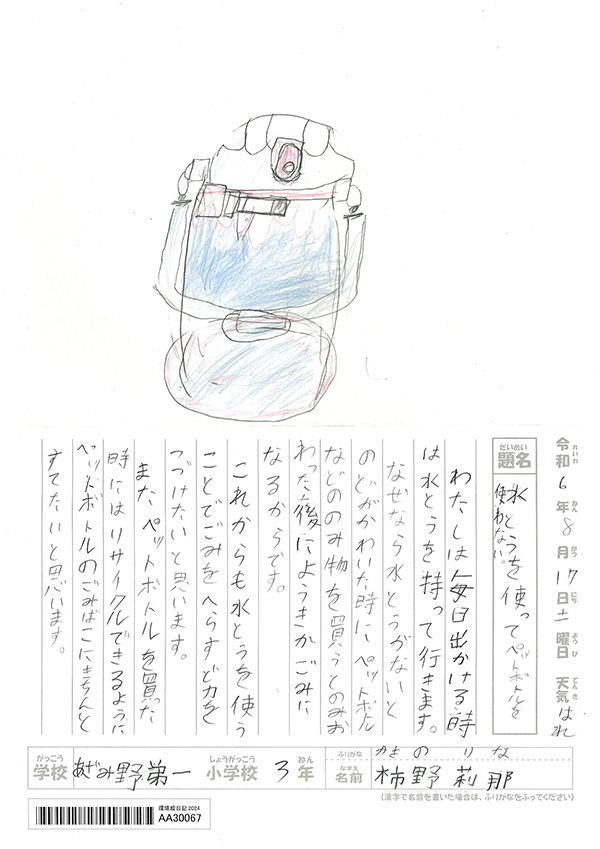 令和6年8月17日土曜日 天気はれ
れいわ ねん がつ にち ようび てんき
だいめい
題名
水とうを使ってペットボトルを
使わない。
わたしは毎日出かける時
は水とうを持って行きます。
なぜなら水とうがないと
のどがかわいた時にペットボトル
などののみ物を買うとのみお
わった後にようきがごみに
なるからです。
これからも水とうを使う
ことでごみをへらすど力を
つづけたいと思います。
またペットボトルを買った
時にはリサイクルできるように
ペットボトルのごみばこにきちんと
すてたいと思います。
がっこう しょうがっこう ねん
学校 あざみ野第一 小学校 3年
ふりがな かきのりな
なまえ
名前 柿野莉那
(漢字で名前を書いた場合は、ふりがなをふってください)
環境絵日記2024
AA30067